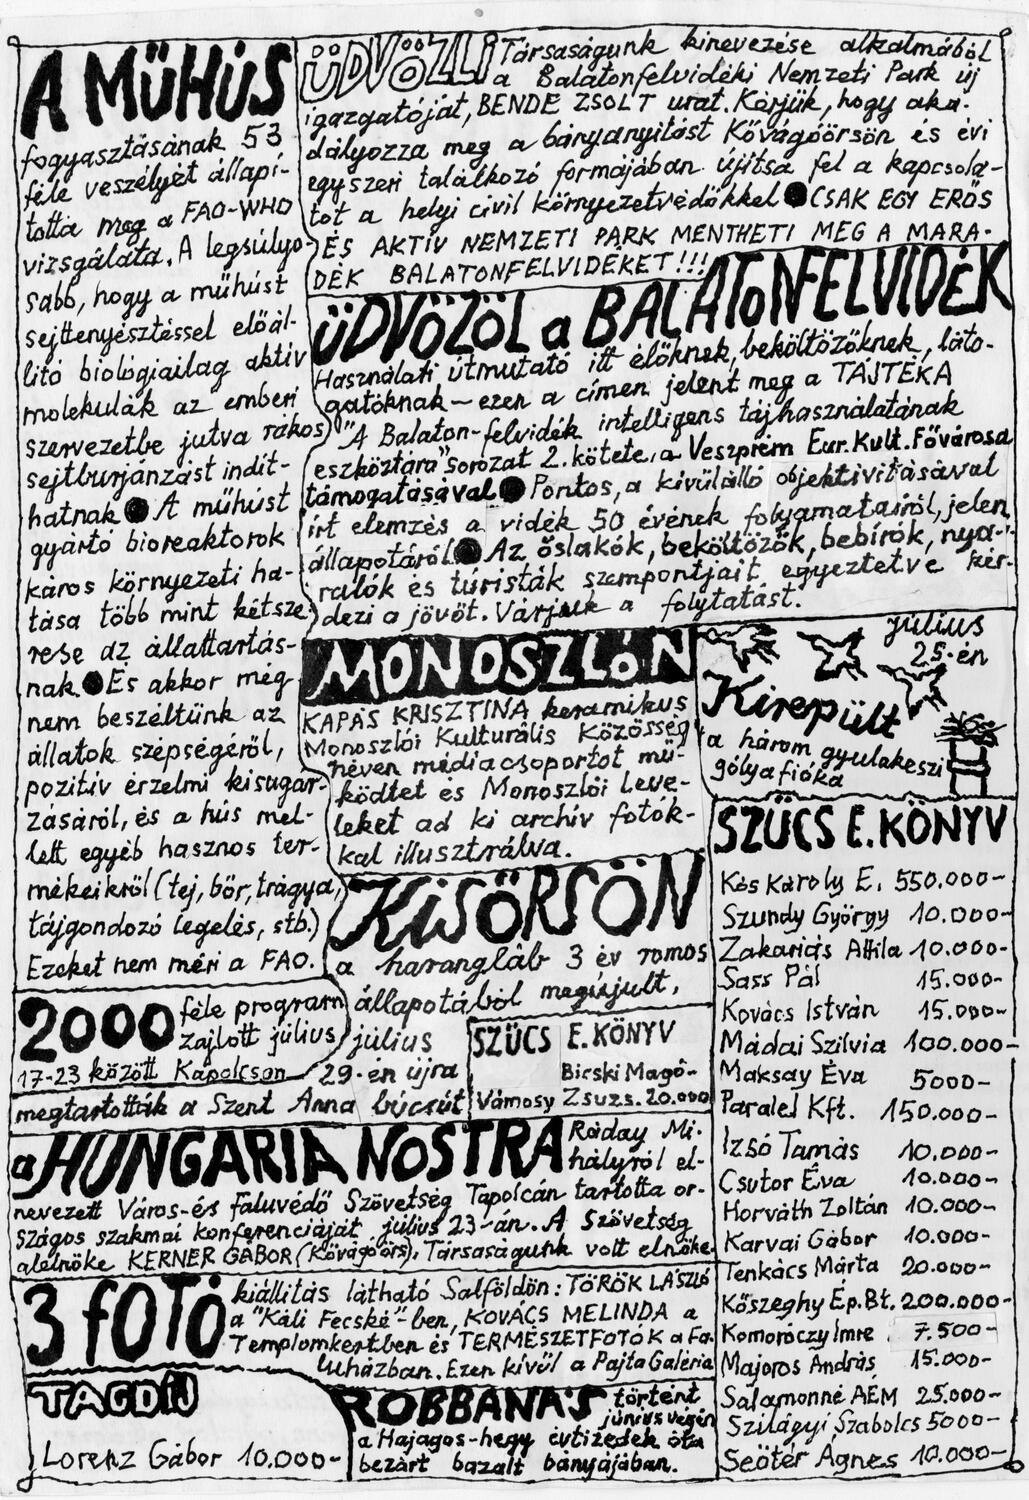 A MŰHÚS
fogyasztásának 53
féle veszélyét állapí-
totta meg a FAO-WHO
vizsgálata. A legsúlyo-
sabb, hogy a műhúst
sejttenyésztéssel előál-
lító biológiailag aktív
molekulák az emberi
szervezetbe jutva rákos
sejtburjánzást indít-
hatnak ● A műhúst
gyártó bioreaktorok
káros környezeti ha-
tása több mint kétsze-
rese az állattartás-
nak. ● És akkor még
nem beszéltünk az
állatok szépségéről,
pozitív érzelmi kisugár-
zásáról, és a hús mel-
lett egyéb hasznos ter-
mékeikről (tej, bőr, trágya,
tájgondozó legelés, stb.)
Ezeket nem méri a FAO.
ÜDVÖZLI Társaságunk kinevezése alkalmából
a Balatonfelvidéki Nemzeti Park új
igazgatóját, BENDE ZSOLT urat. Kérjük, hogy aka-
dályozza meg a bányanyitást Kővágóörsön és évi
egyszeri találkozó formájában újítsa fel a kapcsola-
tot a helyi civil környezetvédőkkel ● CSAK EGY ERŐS
ÉS AKTÍV NEMZETI PARK MENTHETI MEG A MARA-
DÉK BALATONFELVIDÉKET!!!
ÜDVÖZÖL a BALATONFELVIDÉK
Használati útmutató itt élőknek, beköltözőknek, láto-
gatóknak — ezen a címen jelent meg a TÁJTÉKA
"A Balaton-felvidék intelligens tájhasználatának
eszköztára" sorozat 2. kötete, a Veszprém Eur. Kult. Fővárosa
támogatásával ● Pontos, a kívülálló objektivitásával
írt elemzés a vidék 50 évének folyamatairól, jelen
állapotáról ● Az őslakók, beköltözők, bebírók, nya-
ralók és turisták szempontjait egyeztetve kér-
dezi a jövőt. Várjuk a folytatást.
MONOSZLÓN
KAPÁS KRISZTINA keramikus
Monoszlói Kulturális Közösség
néven médiacsoportot mű-
ködtet és Monoszlói Leve-
leket ad ki archív fotók-
kal illusztrálva.
július
25-én
Kirepült
a három gyulakeszi
gólyafióka
KISŐRSÖN
a harangláb 3 év romos
állapotából megújult,
július
29-én újra
megtartották a Szent Anna búcsút
2000 féle program
zajlott július
17-23 között Kapolcson
SZŰCS E. KÖNYV
Bicski Magó-
Vámosy Zsuzs. 20.000
a HUNGARIA NOSTRA Ráday Mi-
hályról el-
nevezett Város-és Faluvédő Szövetség Tapolcán tartotta or-
szágos szakmai konferenciáját július 23-án. A Szövetség
alelnöke KERNER GÁBOR (Kővágóörs), Társaságunk volt elnöke.
3 FOTÓ kiállítás látható Salföldön: TÖRÖK LÁSZLÓ
a "Káli Fecské"-ben, KOVÁCS MELINDA a
Templomkertben és TERMÉSZETFOTÓK a Fa-
luházban. Ezen kívül a Pajta Galéria
TAGDÍJ
Lorenz Gábor 10.000-
ROBBANÁS történt
június végén
a Hajagos-hegy évtizedek óta
bezárt bazalt bányájában.
SZŰCS E. KÖNYV
Kós Károly E. 550.000-
Szundy György 10.000-
Zakariás Attila 10.000-
Sass Pál 15.000-
Kovács István 15.000-
Mádai Szilvia 100.000-
Maksay Éva 5000-
Paralel Kft. 150.000-
Izsó Tamás 10.000-
Csutor Éva 10.000-
Horváth Zoltán 10.000-
Karvai Gábor 10.000-
Tenkács Márta 20.000-
Kőszeghy Ép. Bt. 200.000-
Komoróczy Imre 7.500-
Majoros András 15.000-
Salamonné AEM 25.000-
Szilágyi Szabolcs 5000-
Seőtér Ágnes 10.000-